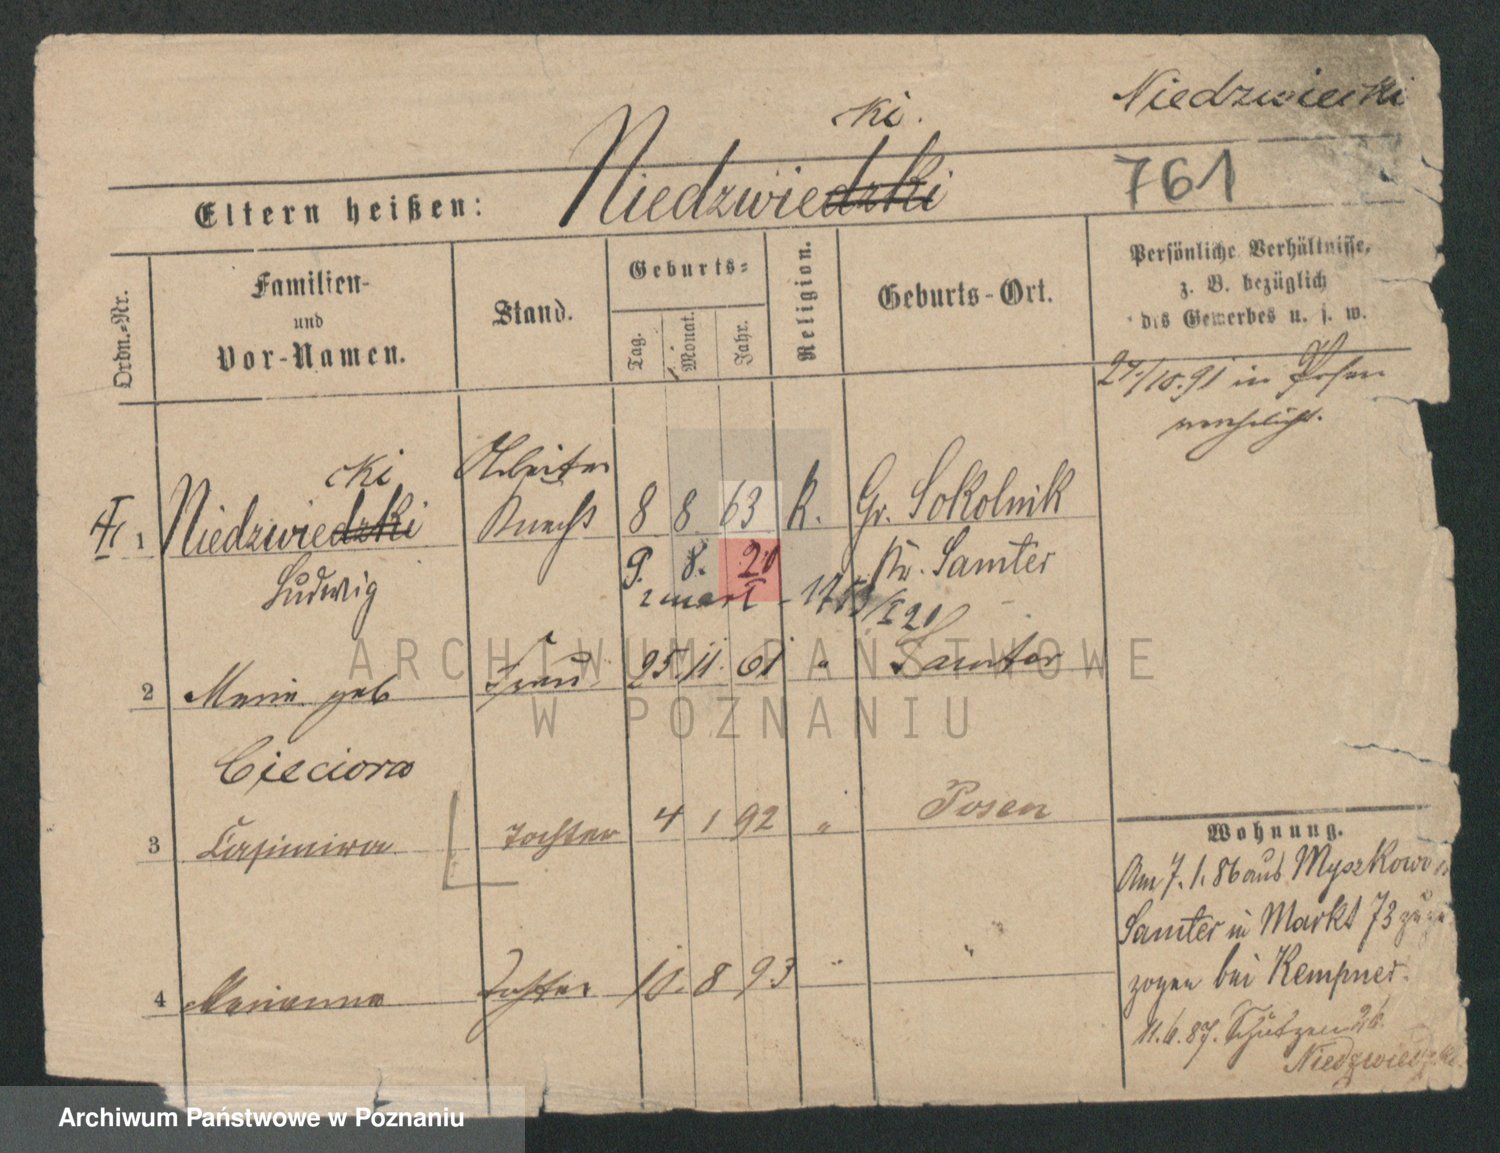 Niedzwiecki
cki.
Eltern heißen: Niedzwiedzki
761
Ordn.-Nr.
Familien-
und
Vor-Namen.
Stand.
Geburts-
Tag.
Monat.
Jahr.
Religion.
Geburts-Ort.
Persönliche Verhältnisse,
z. B. bezüglich
des Gewerbes u. s. w.
27./10.91 in Posen
verehelicht.
cki Arbeiter
1 Niedzwiedzki Knecht 8 8 63 K. Gr. Sokolnik
Ludwig 9. 8. 20 Kr. Samter
zmarł
2 Marie geb Frau 25 11. 61 " Samter
Cieciora
3 Casimira Tochter 4 1 92 " Posen
4 Marianna Tochter 10. 8 93 " "
Wohnung.
Am 7. 1. 86 aus Myszkowo
Samter in Markt 73 zuge
zogen bei Kempner.
11.6.87. Schützen 26.
Niedzwiedzki
ARCHIWUM PAŃSTWOWE
W POZNANIU
Archiwum Państwowe w Poznaniu